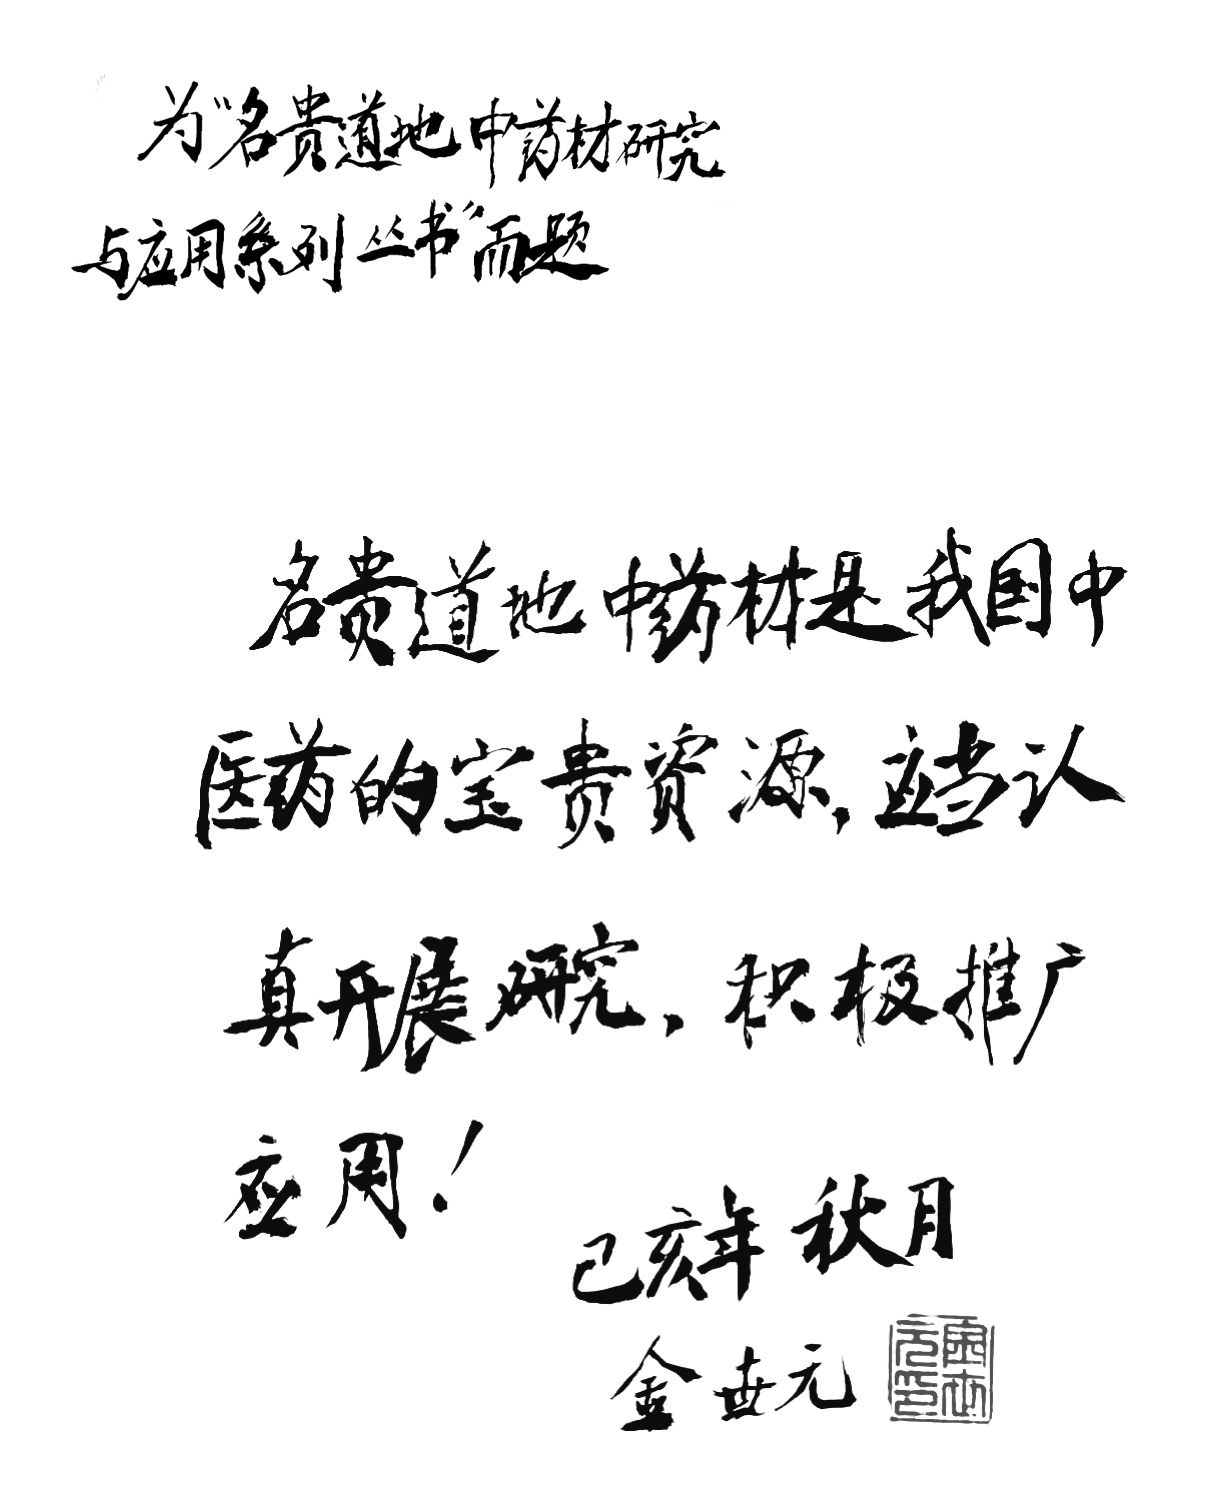 为“名贵道地中药材研究
与应用系列丛书”而题
名贵道地中药材是我国中
医药的宝贵资源，应当认
真开展研究，积极推广
应用！
己亥年秋月
金世元
金世元印